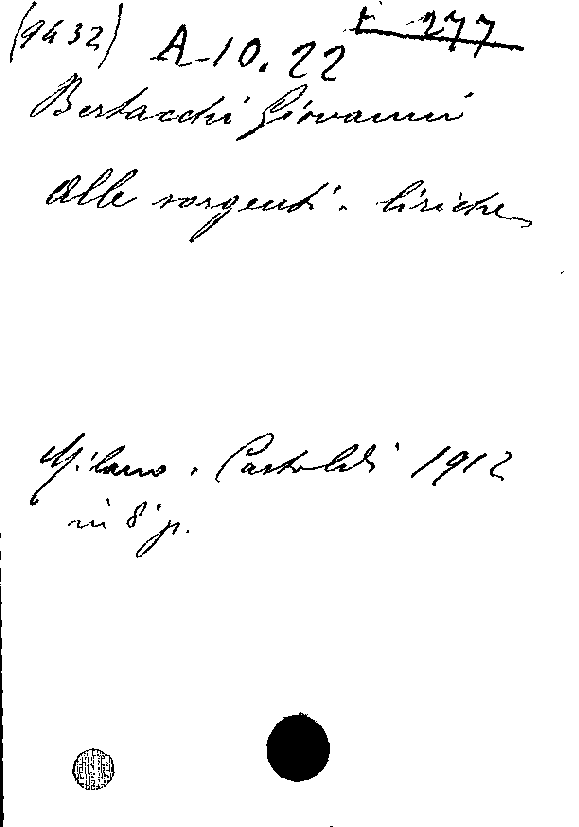 (9432) A-10.22 F 277
Bertacchi Giovanni
Alle sorgenti - liriche
Milano. Castoldi 1912
in 8° p.